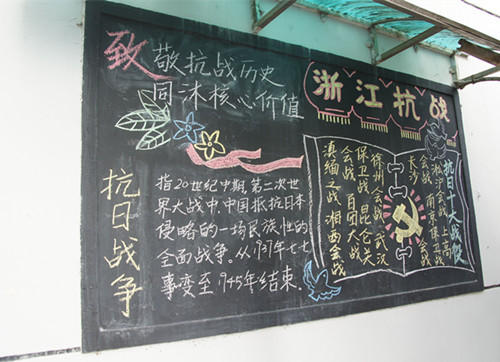 致敬抗战历史
同沐核心价值
浙江抗战
抗日战争
指20世纪中期,第二次世
界大战中,中国抵抗日本
侵略的一场民族性的
全面战争。从1937年七七
事变至1945年结束.
抗日十大战役
淞沪会战 上高
会战 南京保卫战
长沙 会战
徐州会战 武汉
保卫战 昆仑关
会战 百团大战
滇缅之战 湘西会战